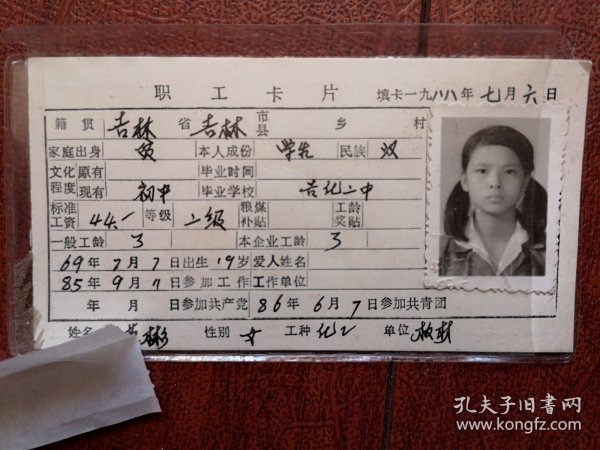 职工卡片 填卡一九八八年七月六日
籍贯 吉林 省 吉林 市县 乡 村
家庭出身 贫 本人成份 学生 民族 汉
文化程度 原有 毕业时间
现有 初中 毕业学校 吉化二中
标准工资 44.1 等级 二级 粮煤补贴 工龄奖贴
一般工龄 3 本企业工龄 3
69年7月7日出生19岁 爱人姓名
85年9月11日参加工作 工作单位
年 月 日参加共产党 86年6月7日参加共青团
姓名 彬 性别 女 工种 化工 单位
孔夫子旧书网
www.kongfz.com